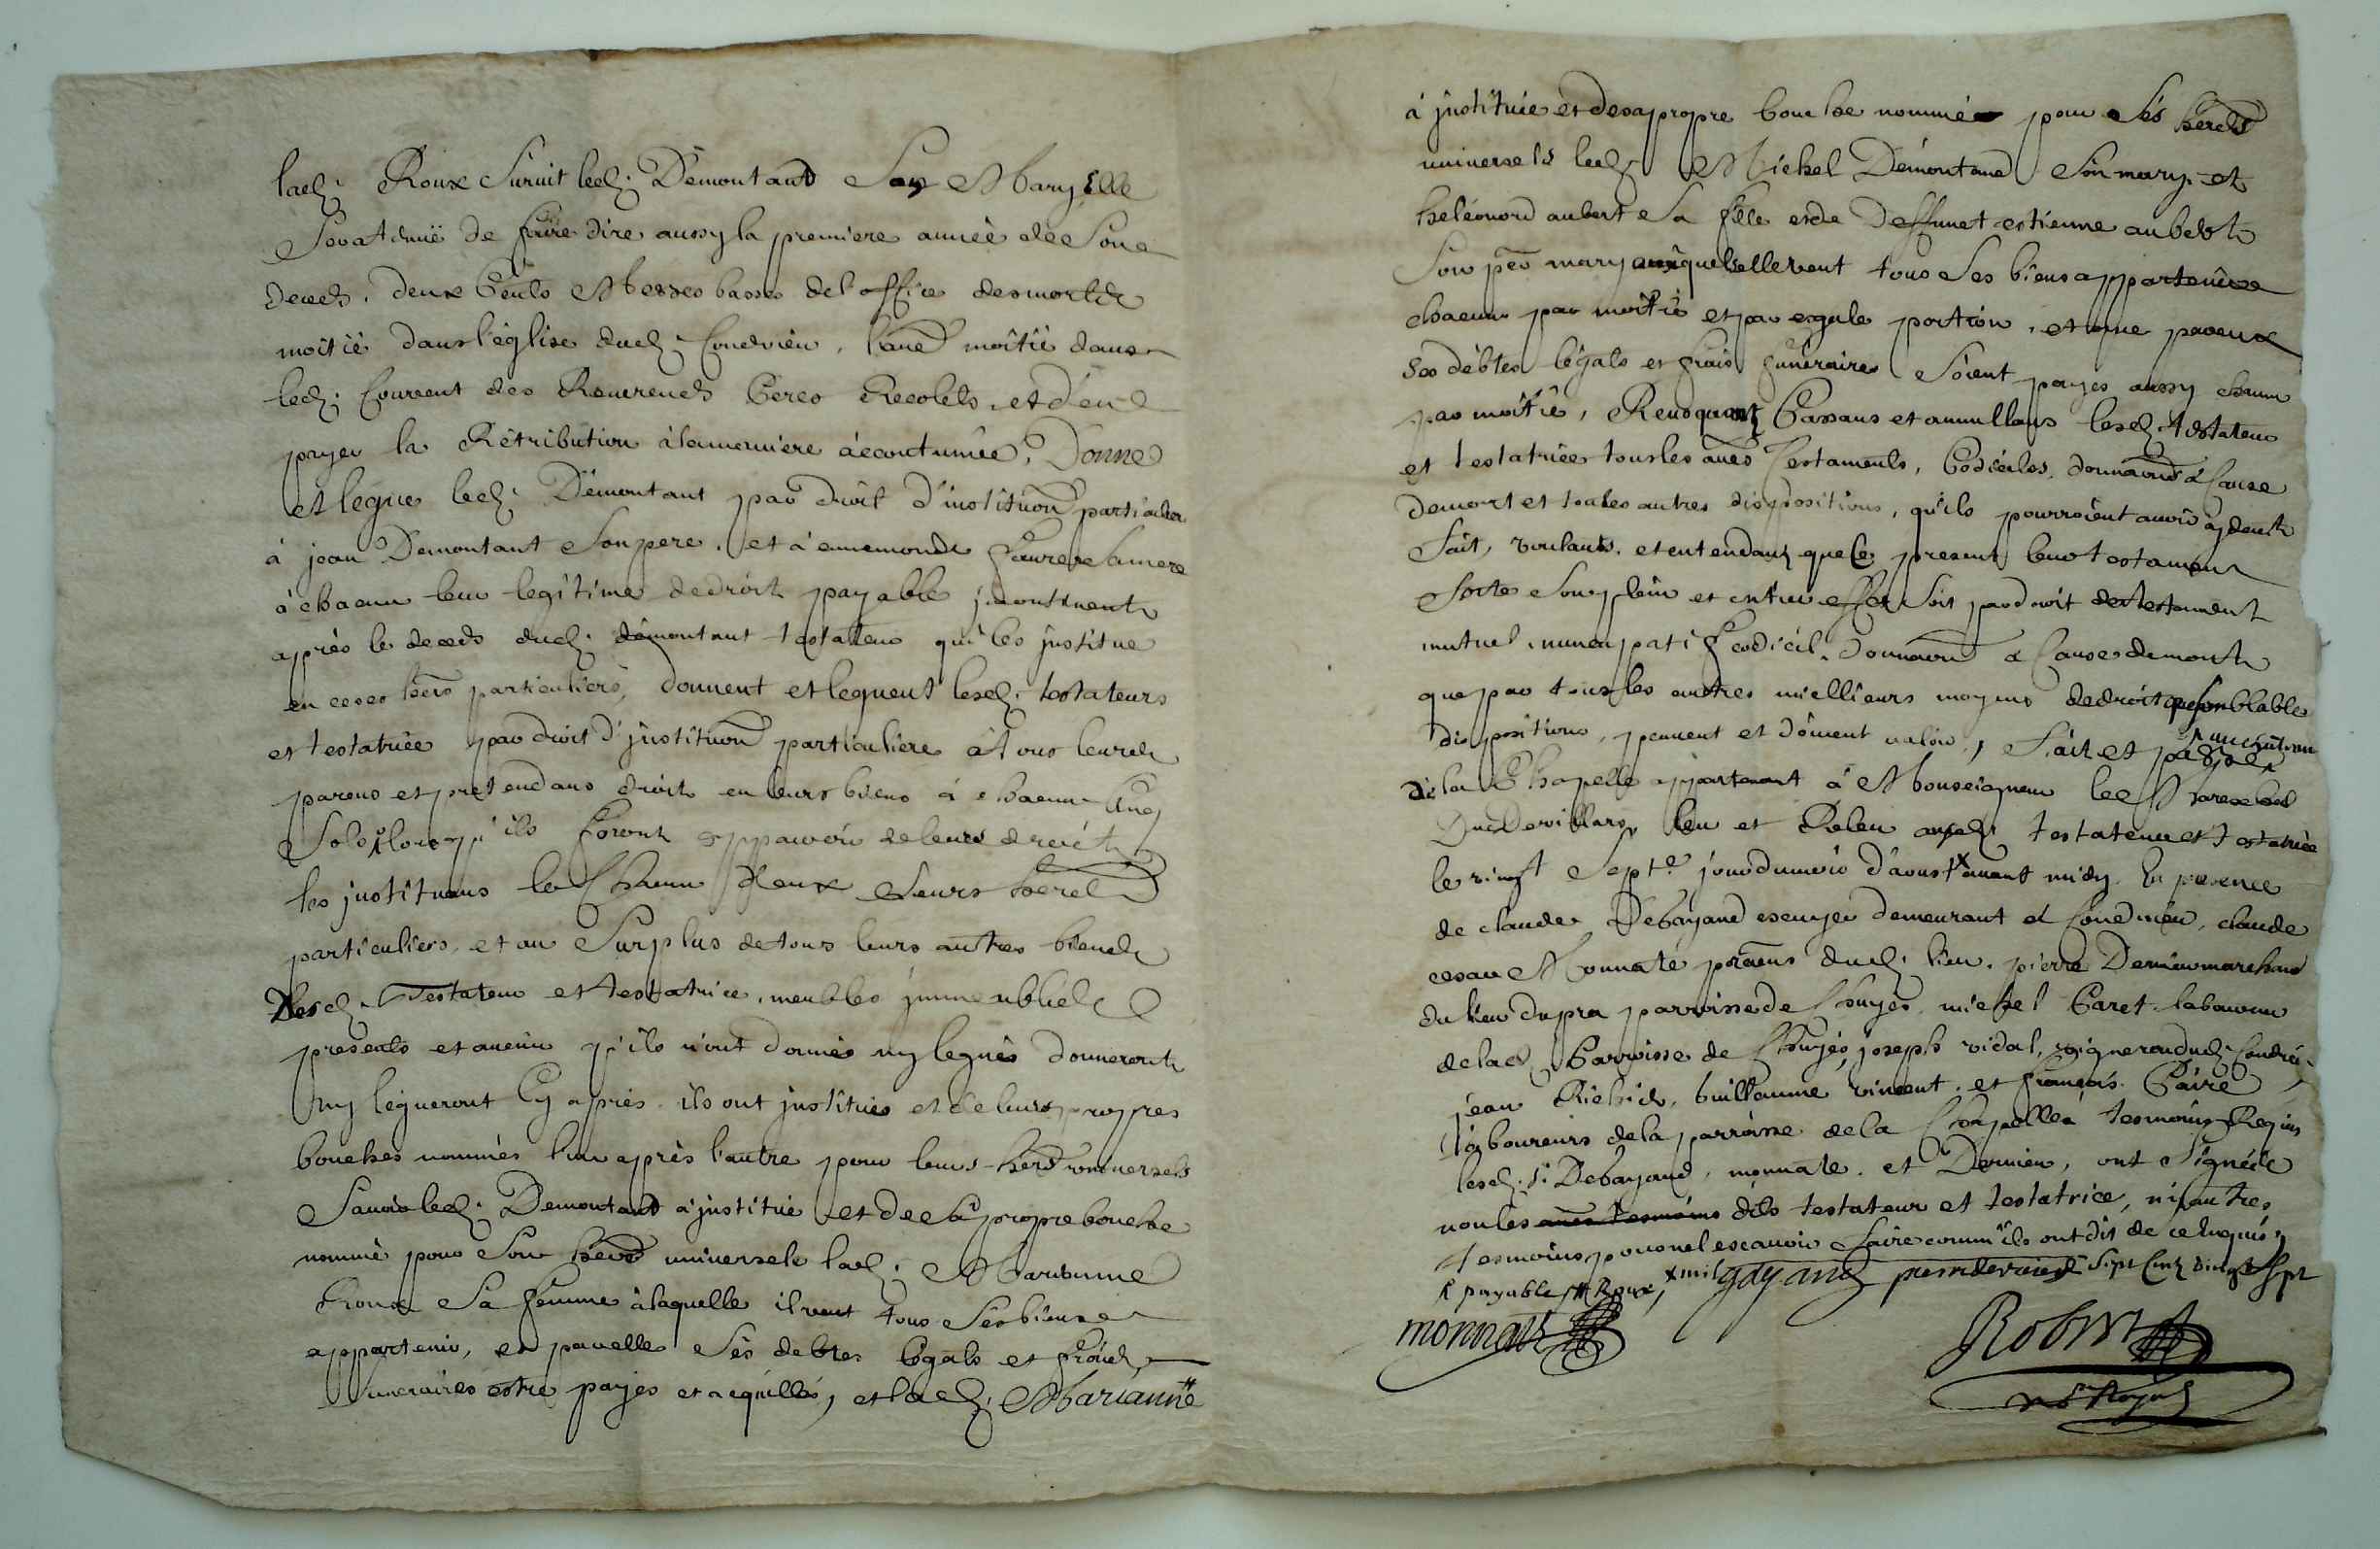 lad. Roux survit led. Demontant son Mary Elle
sera tenuë de faire dire aussy la premiere année de son
deceds. deux Cents Messes basses de l'office des morts
moitié dans l'église dud. Condrieu, l'aue. moîtié dans
led. Couvent des Reverends Peres Recolets, et d'en
payer la Rétribution à la maniere àccoutumée, Donne
et legue led. Démontant par droit d'institu͠on particuliere
à jean Demontant son pere, et à ennemonde faure sa mere
à chacun leur legitime de droit payable incontinent
après le deceds dud. démontant testateur qui les institue
en ce ses hers particuliers, donnent et leguent lesd. testateurs
et testatrice par droit d'institu͠on particuliere à tous leurs
parens et pretendans droit en leurs biens à chacun Cinq
Sols lors qu'ils feront apparoir de leurs droits
les instituans le Chacun d'eux leurs hered.
particuliers, et au Surplus de tous leurs autres biens
lesd. Testateur et testatrice, meubles immeubles
presents et avenir qu'ils n'ont donnés ny legués donneront
ny légueront Cy après, ils ont institués et de leurs propres
bouches nommés l'un après l'autre pour leurs hers universels
Savoir led. Demontant à institué et de sa propre bouche
nommé pour son hered. universele lad. Marianne
Roux Sa femme à laquelle il veut tous Ses biens
appartenir, et par elle Sés debtes légats et frais
funeraires estre payés et acquittés, et lad. Marianne
à instituée et de sa propre bouche nommée pour Sés hereds
universels led. Michel Démontant son mary, et
heléonord aubert Sa fille et de deffunct estienne aubert
Son per mary auxquels elle veut tous Ses biens appartenir
chacun par moitié et par egale portion, et que par eux
Ses débtes légats et frais funéraires Soient payés aussy chacun
par moîtié, Revoquant Cassans et annullans lesd. testateur
et testatrice tous les aues Testaments, Codiciles, donna͠on à Cause
de mort et toutes autres dispositions, qu'ils pourroient avoir cy devant
fait, voulants, et entendans que le present leur testament
Sorte Son plein et entier effet soit par droit de testament
mutuel, nuncupatif codicil, Donna͠on à Cause de mort
que par tous les autres meillieurs moyens de droit que semblable
dispositions, peuvent et doivent valoir, fait et passé au château
de la Chapelle appartenant à Monseigneur le Marechal
Duc de villars, leu et Releu auxd. testateur et testatrice
le vingt Septe. jour du mois d'aoust x avant midy. En presence
de claude Degayand escuyer demeurant à Condrieu, claude
cesar Monnate praticiens dud. lieu, pierre Dervieu marchand
du lieu du pra parroisse de Chuyes, michel Caret laboureur
de lad. Parroisse de Chuyes, joseph vidal, vigneron dud. Condrieu
jean Richid, Guillaume vincent, et françois Paire
laboureurs de la parroisse de la Chapelle tesmoins Requis
lesd. S. Degayand, monnate, et Dervieu, ont Signé &
non les dits testateur et testatrice, ni autres
tesmoins pour ne le scavoir faire comm'ils ont dit de ce Enquis,
payable, Roux, x mil Sept Cent vingt Sept
gayand pierre dervieux
monnate
Robert
nore Royal